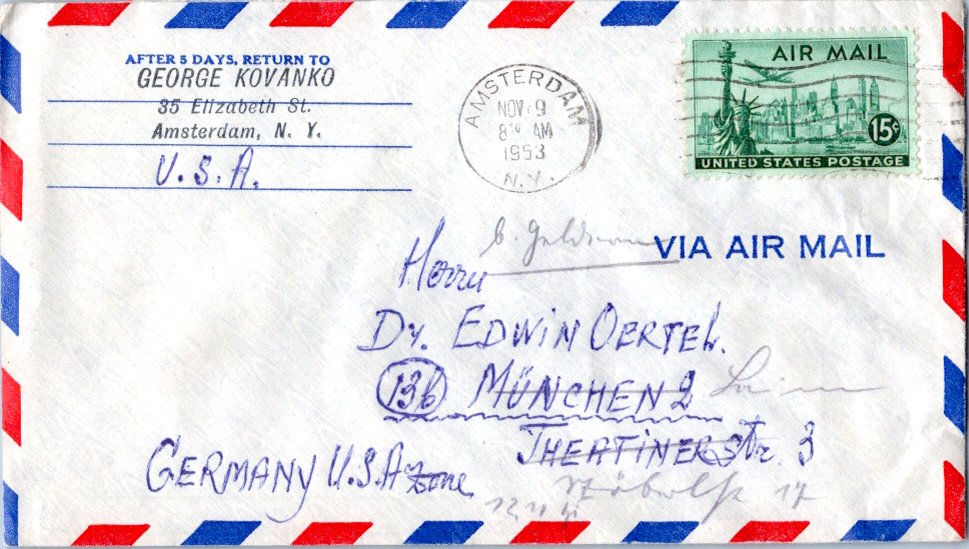 AFTER 5 DAYS, RETURN TO
GEORGE KOVANKO
35 Elizabeth St.
Amsterdam, N. Y.
U.S.A.
AMSTERDAM
NOV 9
8 AM
1953
N.Y.
AIR MAIL
15¢
UNITED STATES POSTAGE
VIA AIR MAIL
Herrn
Dr. EDWIN OERTEL.
13b MÜNCHEN 2
THEATINERStr. 3
GERMANY U.S.A Zone
17